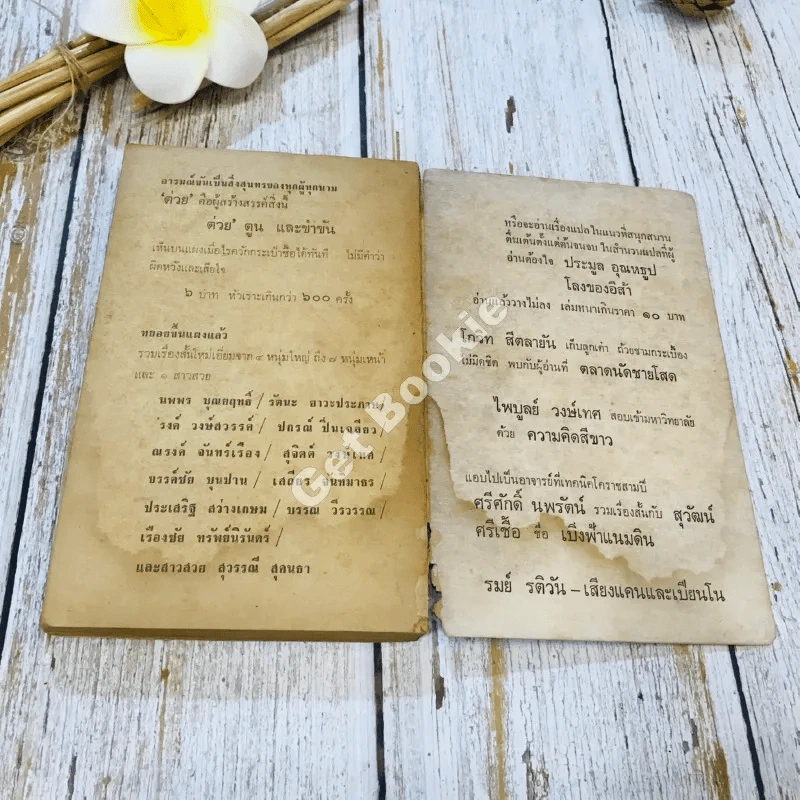 อารมณ์ขันเป็นสิ่งสุนทรของทุกผู้ทุกนาม
'ต่วย' คือผู้สร้างสรรค์สิ่งนี้
ต่วย' ตูน และขำขัน
เห็นบนแผงเมื่อไรควักกระเป๋าซื้อได้ทันที ไม่มีคำว่า
ผิดหวังและเสียใจ
๖ บาท หัวเราะเกินกว่า ๖๐๐ ครั้ง
ทยอยขึ้นแผงแล้ว
รวมเรื่องสั้นใหม่เอี่ยมจาก ๔ หนุ่มใหญ่ ถึง ๗ หนุ่มเหน้า
และ ๑ สาวสวย
นพพร บุณยฤทธิ์ / รัตนะ ยาวะประภาษ /
'รงค์ วงษ์สวรรค์ / ปกรณ์ ปิ่นเฉลียว /
ณรงค์ จันทร์เรือง / สุจิตต์ วงษ์เทศ /
ขรรค์ชัย บุนปาน / เสถียร จันทิมาธร /
ประเสริฐ สว่างเกษม / บรรณ วีรวรรณ /
เรืองชัย ทรัพย์นิรันดร์ /
และสาวสวย สุวรรณี สุคนธา
หรือจะอ่านเรื่องแปลในแนวที่สนุกสนาน
ตื่นเต้นตั้งแต่ต้นจนจบ ในสำนวนแปลที่ผู้
อ่านต้องใจ ประมูล อุณหธูป
โลงของอีส้า
อ่านแล้ววางไม่ลง เล่มหนาเกินราคา ๑๐ บาท
โกวิท สีตลายัน เก็บลูกเต๋า ถ้วยชามกระเบื้อง
ไม่มีคชิต พบกับผู้อ่านที่ ตลาดนัดชายโสด
ไพบูลย์ วงษ์เทศ สอบเข้ามหาวิทยาลัย
ด้วย ความคิดสีขาว
แอบไปเป็นอาจารย์ที่เทคนิคโคราชสามปี
ศรีศักดิ์ นพรัตน์ รวมเรื่องสั้นกับ สุวัฒน์
ศรีเชื้อ ชื่อ เบิ่งฟ้าแนมดิน
รมย์ รติวัน – เสียงแคนและเปียนโน
Get Bookie